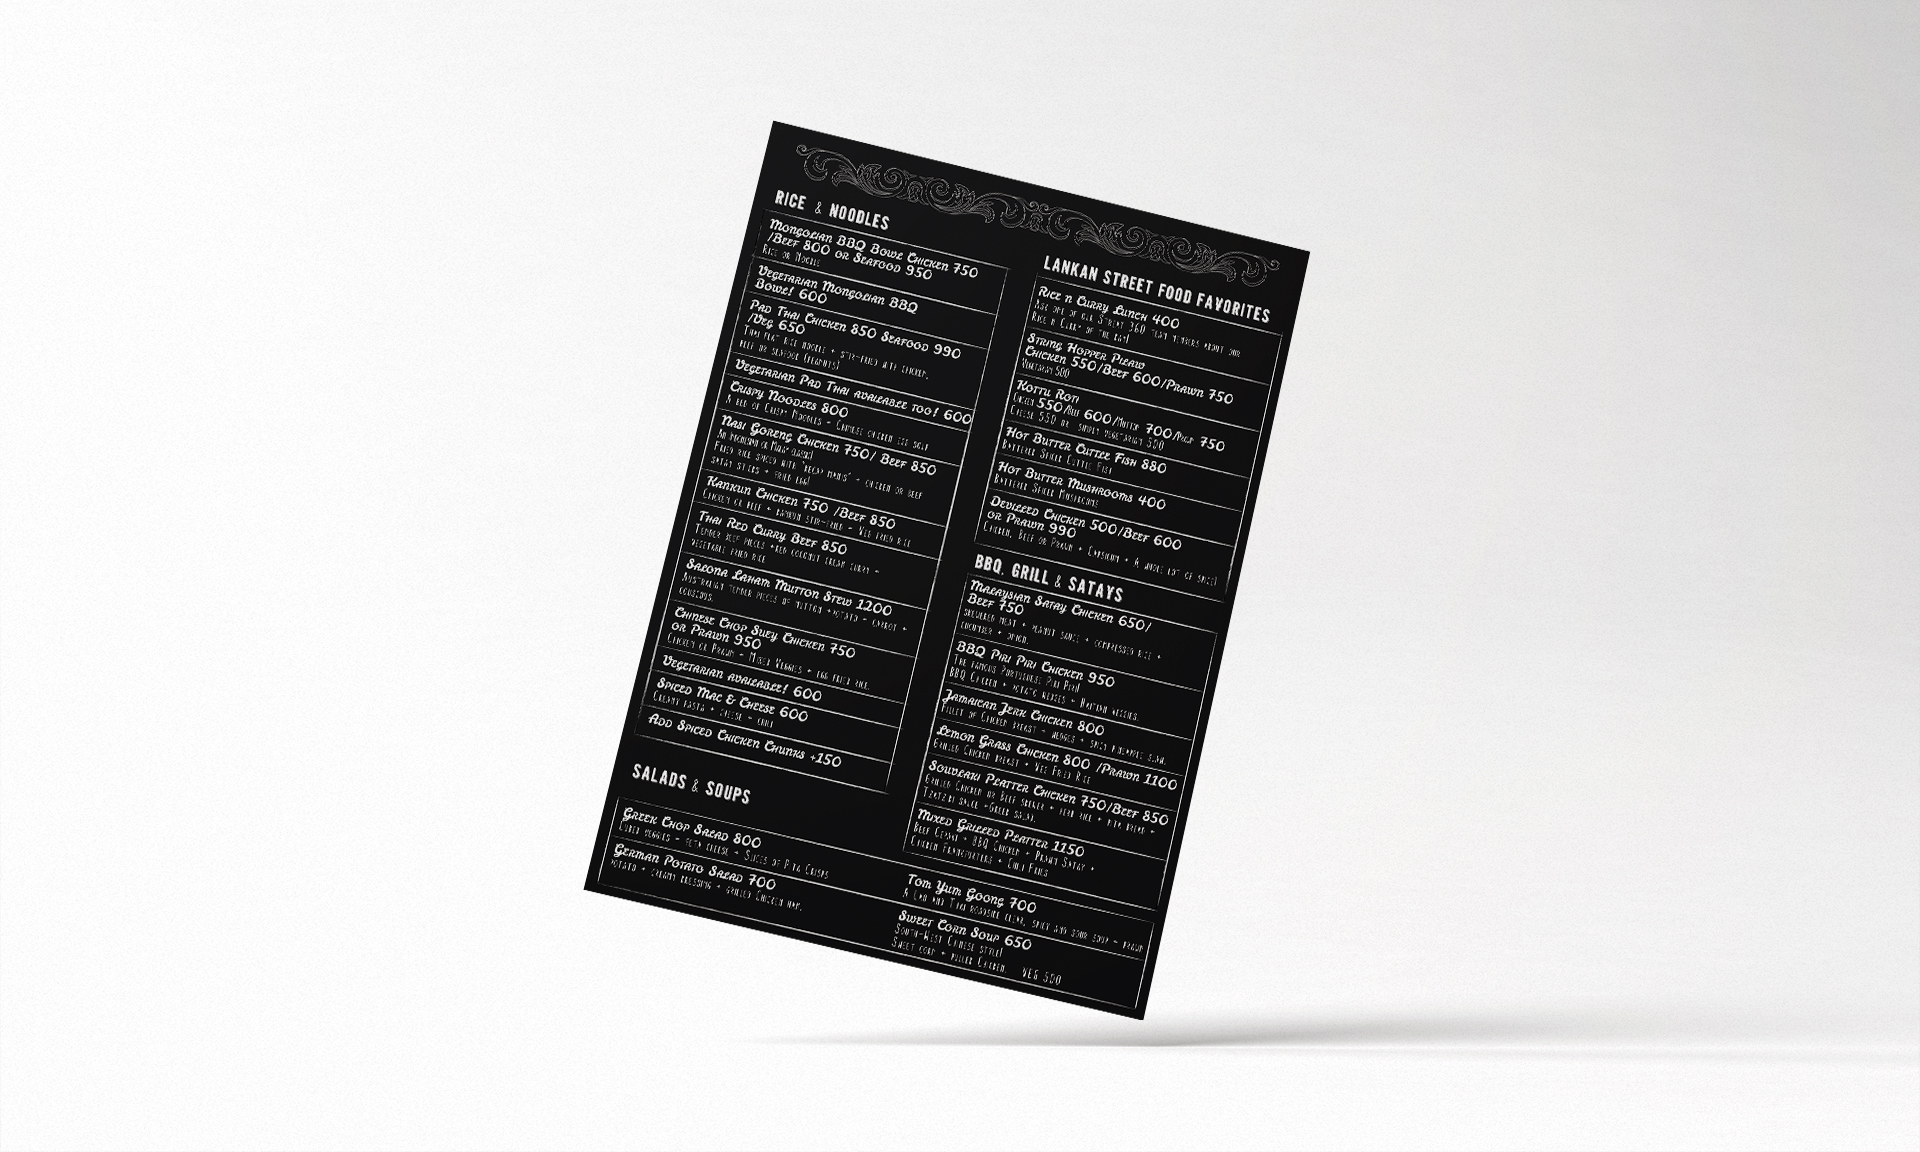 RICE & NOODLES
Mongolian BBQ Bowl Chicken 750
/Beef 800 or Seafood 950
Rice or Noodle
Vegetarian Mongolian BBQ
Bowl! 600
Pad Thai Chicken 850 Seafood 990
/Veg 650
Thai flat rice noodle + stir-fried with chicken,
beef or seafood (peanuts)!
Vegetarian Pad Thai available too! 600
Crispy Noodles 800
A bed of Crispy Noodles + Chinese chicken
Nasi Goreng Chicken 750/ Beef 850
Fried rice spiced with "kecap manis" + chicken or beef
satay sticks + fried egg!
Kankun Chicken 750 /Beef 850
Chicken or beef + kankun stir-fried + Veg fried rice
Thai Red Curry Beef 850
Tender beef pieces +red coconut cream curry +
vegetable fried rice
Salona Laham Mutton Stew 1200
Australian tender pieces of mutton +potato + carrot +
couscous.
Chinese Chop Suey Chicken 750
or Prawn 950
Chicken or Prawn + Mixed Veggies + egg fried rice.
Vegetarian available! 600
Spiced Mac & Cheese 600
Creamy pasta + cheese + chili
Add Spiced Chicken Chunks +150
SALADS & SOUPS
Greek Chop Salad 800
Cubed veggies + feta cheese + Slices of Pita Crisps
German Potato Salad 700
Potato + creamy dressing + grilled Chicken ham.
LANKAN STREET FOOD FAVORITES
Rice n Curry Lunch 400
Ask one of our Street 360 team members about our
Rice n Curry of the day!
String Hopper Pilaw
Chicken 550/Beef 600/Prawn 750
Vegetarian 500
Kottu Roti
Chicken 550/Beef 600/Mutton 700/Prawn 750
Cheese 550 or simply vegetarian 500
Hot Butter Cuttle Fish 880
Battered Spiced Cuttle Fish
Hot Butter Mushrooms 400
Battered Spiced Mushrooms
Devilled Chicken 500/Beef 600
or Prawn 990
Chicken, Beef or Prawn + Capsicum + A whole lot of spice!
BBQ, GRILL & SATAYS
Malaysian Satay Chicken 650/
Beef 750
skewered meat + peanut sauce + compressed rice +
cucumber + onion.
BBQ Piri Piri Chicken 950
The famous Portuguese Piri Piri!
BBQ Chicken + potato wedges + veggies.
Jamaican Jerk Chicken 800
Fillet of Chicken breast + wedges + spicy pineapple slaw.
Lemon Grass Chicken 800 /Prawn 1100
Grilled Chicken breast + Veg Fried Rice
Souvlaki Platter Chicken 750/Beef 850
Grilled Chicken or Beef skewer + herb rice + pita bread +
Tzatziki sauce +Greek salad.
Mixed Grilled Platter 1150
Beef + BBQ Chicken + Prawn Satay +
Chicken Frankfurters + Chili Fries
Tom Yum Goong 700
A Lao and Thai roadside clear, spicy and sour soup + prawn
Sweet Corn Soup 650
South-West Chinese style!
Sweet corn + pulled Chicken. VEG 500